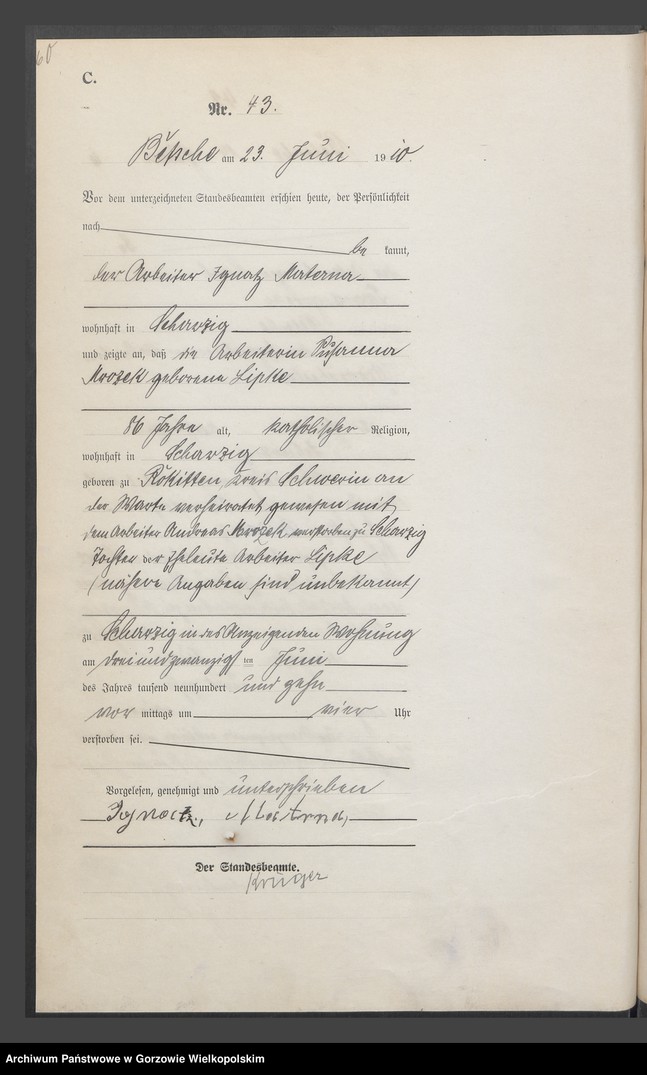 60
C.
Nr. 43.
Betsche am 23. Juni 1910.
Vor dem unterzeichneten Standesbeamten erschien heute, der Persönlichkeit
nach be kannt,
der Arbeiter Ignatz Materna
wohnhaft in Scharzig
und zeigte an, daß die Arbeiterin Susanna
Mrozek geborene Lipke
86 Jahre alt, katholischer Religion,
wohnhaft in Scharzig
geboren zu Rokitten, Kreis Schwerin an
der Warte verheiratet gewesen mit
dem Arbeiter Andreas Mrozek, verstorben zu Scharzig
Tochter der Eheleute Arbeiter Lipke
(nähere Angaben sind unbekannt)
zu Scharzig in des Anzeigenden Wohnung
am dreiundzwanzigsten Juni
des Jahres tausend neunhundert und zehn
vor mittags um vier Uhr
verstorben sei.
Vorgelesen, genehmigt und unterschrieben
Ignatz, Materna,
Der Standesbeamte.
Krüger
Archiwum Państwowe w Gorzowie Wielkopolskim